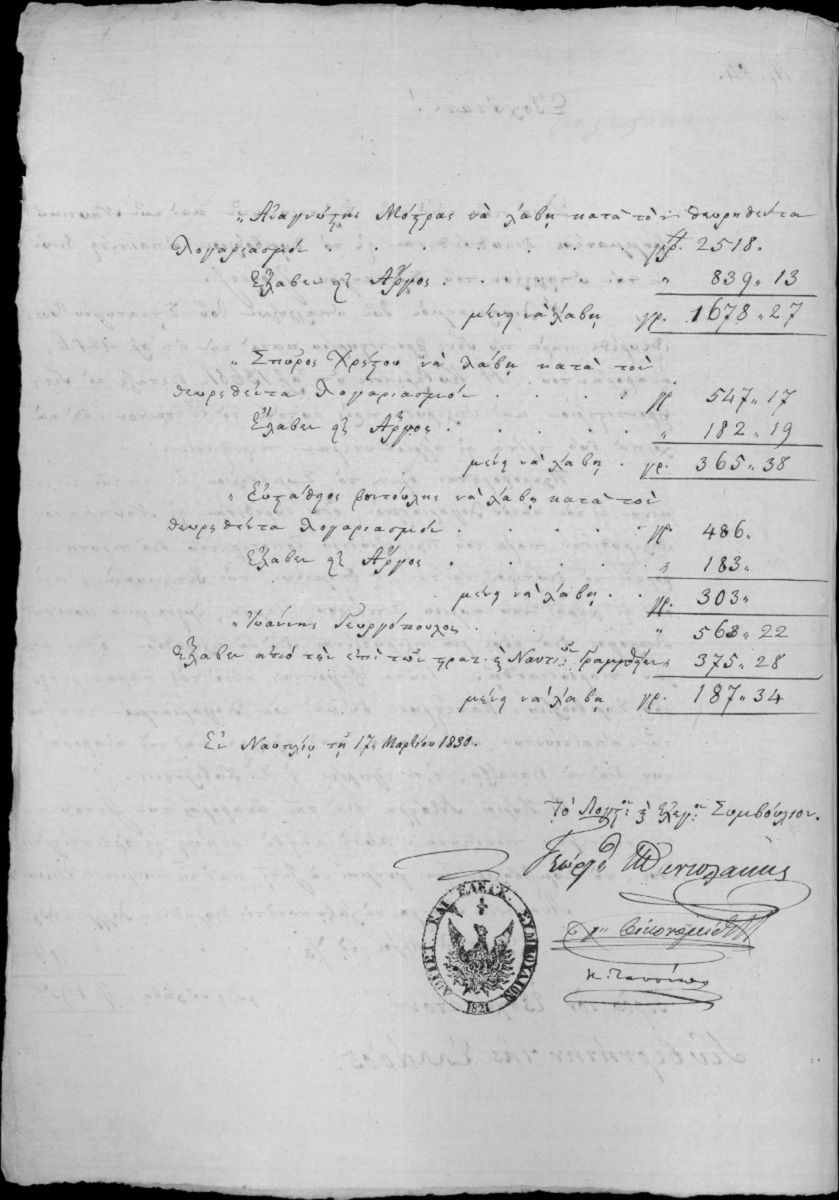 „ Ἀναγνώτης Μότρας νὰ λάβῃ κατὰ τὸν θεωρηθέντα
λογαριασμόν . . . . . . γρ. 2518.
Ἔλαβεν ἐξ Ἄργος . . . . . „ 839 „ 13
μένει νὰ λάβῃ γρ. 1678 „ 27
„ Σπῦρος Χρήστου νὰ λάβῃ κατὰ τὸν
θεωρηθέντα λογαριασμόν . . . . γρ 547 „ 17
Ἔλαβεν ἐξ Ἄργος . . . . . „ 182 „ 19
μένει νὰ λάβῃ . γρ. 365 „ 38
„ Εὐστάθιος νὰ λάβῃ κατὰ τὸν
θεωρηθέντα λογαριασμόν . . . . . γρ. 486.
Ἔλαβεν ἐξ Ἄργος . . . . . „ 183 „
μένει νὰ λάβῃ . γρ. 303 „
„ Ἰωάννης Γεωργόπουλος . . . . „ 563 „ 22
Ἔλαβεν ἀπὸ τὴν ἐπὶ τῶν Ναυτι: Γραμμτείαν „ 375 „ 28
μένει νὰ λάβῃ γρ. 187 „ 34
Ἐν Ναυπλίῳ τῇ 17 Μαρτίου 1830.
Τὸ Λογιστ: Ἐλεγ: Συμβούλιον.
Γεώργ
ΛΟΓΙΣΤ. ΚΑΙ ΕΛΕΓΚ. ΣΥΜΒΟΥΛΙΟΝ
1821